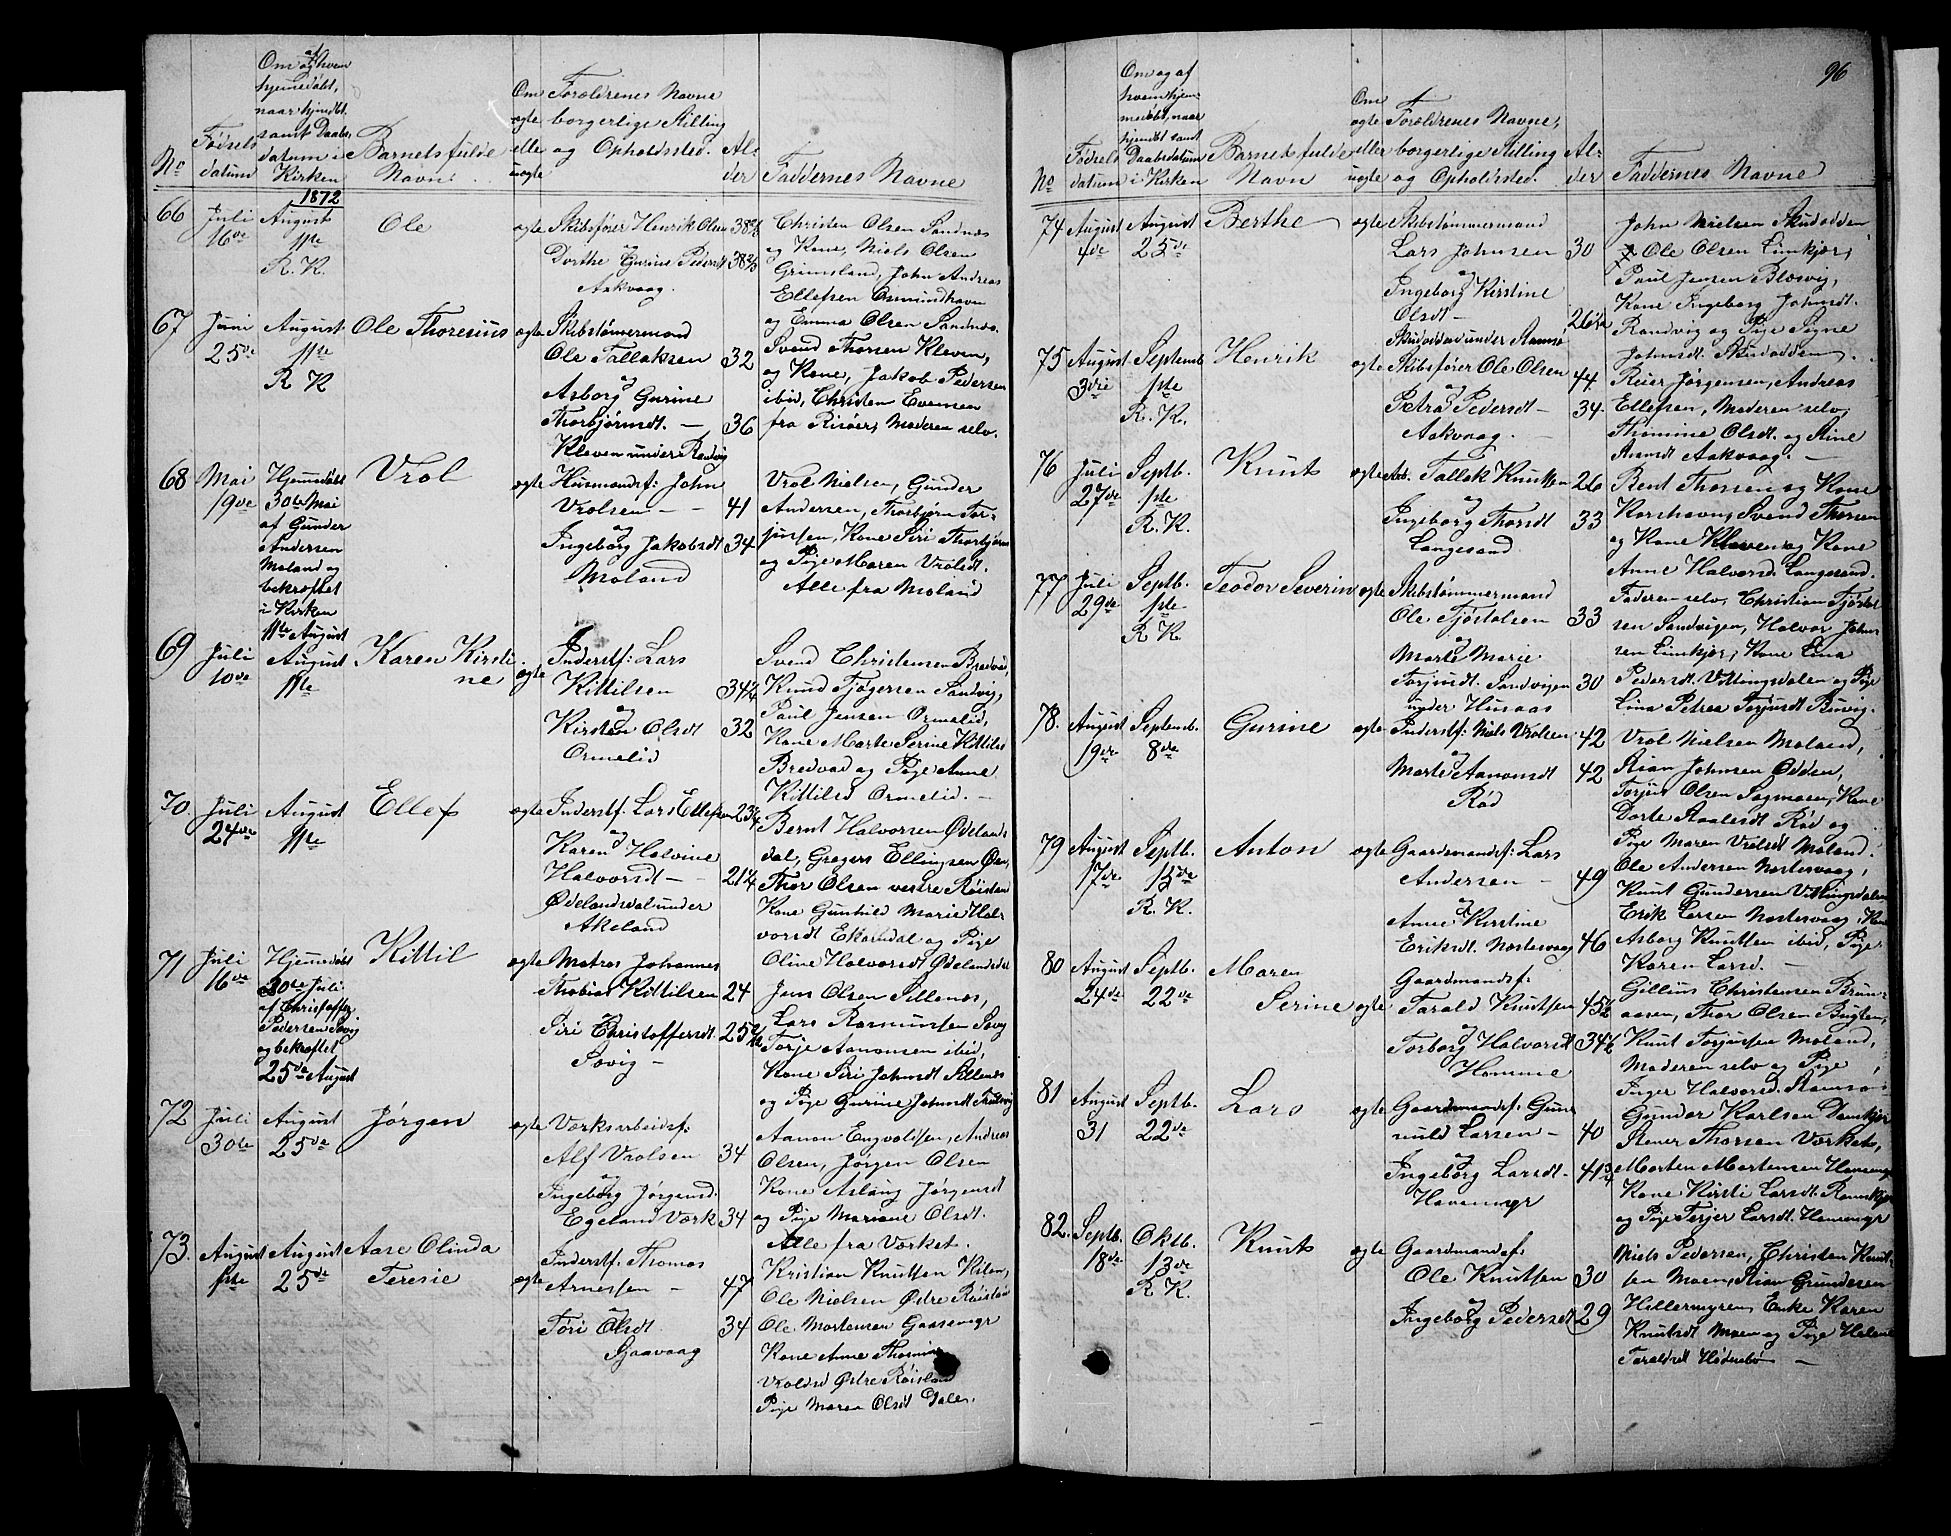 No
Fødsels datum
Om og af hvem hjemmedøbt, naar hjemdbt. samt Daabsdatum i Kirken
Barnets fulde Navn.
Om ægte eller uægte
Forældrenes Navne borgerlige Stilling og Opholdsted.
Alder
Faddernes Navne
1872
66 Juli 16de August 11te R. K. Ole ægte
Skibsfører Henrik Olsen 38
og
Dorthe Gurine Pedersdt 38
Askvaag.
Christen Olsen Sandnæs
og Kone, Niels Olsen
Grimsland, John Andreas
Ellefsen Osmundhavn
og Emma Olsen Sandnæs.
67 Juni 25de August 11te R K Ole Thoresius ægte
Skibstømermand
Ole Tallaksen 32
og
Asborg Gurine
Thorbjørnsdt. — 36
Kleven under Randvig
Svend Thorsen Kleven,
og Kone, Jakob Pedersen
ibid, Christen Evensen
fra Risøer, Moderen selv.
68 Mai 19de Vrol ægte
Hjemmedøbt
30te Mai
af Gunder
Andersen
Moland og
bekræftet
i Kirken
11te August
Husmandsf: John
Vrolsen — 41
og
Ingeborg Jakobsdt 34
Moland
Vrol Nielsen, Gunder
Andersen, Thorbjørn Tor-
jussen, Kone Siri Thorbjørns
og Pige Maren Vrolsdt.
Alle fra Moland
69 Juli 10de August 11te Karen Kirsti-
ne ægte
Inderstf: Lars
Kittilsen 34½
og
Kirsten Olsdt 32
Ormelid
Svend Christensen Bredvad,
Knud Tjøgersen Sandvig,
Paul Jensen Ormelid,
Kone Marte Serine Kittilsd
Bredvad og Pige Anne
Kittilsd Ormelid. —
70. Juli 24de August 11te Ellef ægte
Inderstf: Lars Ellefsen 23¾
og
Karen Halvine
Halvorsdt — 21¼
Ødelandsdal under
Akeland
Bernt Halvorsen Ødelands
dal, Gregers Ellingsen
Thor Olsen vestre Røisland
Kone Gunhild Marie Hal-
vorsdt Ekorndal og Pige
Oline Halvorsdt Ødelandsdal
71 Juli 16de Kittil ægte
Hjemmedøbt
20de Juli
af Christoffer
Pedersen Søvig
og bekræftet
25de August
Matros Johannes
Thobias Kittilsen 24
og
Siri Christoffersdt. 25
Søvig —
Jens Olsen Sillenæs,
Lars Rasmussen Søvig
Torje Aanonsen ibid,
Kone Siri Johnsdt Sillenæs
og Pige Gurine Johnsdt
72 Juli 30te August 25de Jørgen ægte
Værksarbeidsf:
Alf Vrolsen 34
og
Ingeborg Jørgensd.
Egeland Værk 34
Aanon Engvoldsen, Andreas
Olsen, Jørgen Olsen
Kone Aslaug Jørgensdt
og Pige Mariane Olsdt.
Alle fra Værket.
73. August 1ste August 25de Aase Olinda
Teresie ægte
Inderstf: Thomas
Arnessen — 47
og
Tøri Olsdt. 34
Gaavaag
Kristian Knutsen Kilen,
Ole Nielsen Østre Røisland
Ole Mortensen Gaasemyr
Kone Anne Thomine
Vrolsd Østre Røisland
Pige Maren Olsdt Dale.
96
No
Fødsels datum
Om og af hvem hjemmedøbt, naar hjemdbt samt Daabsdatum i Kirken
Barnets fulde Navn
Om ægte eller uægte
Forældrenes Navne, borgerlige Stilling og Opholdsted.
Alder
Faddernes Navne
74 August 4de August 25de Berthe ægte
Skibstømmermand
Lars Johnsen 30
og
Ingeborg Kirstine
Olsdt — 26½
Skudodden under Stamsø
John Nielsen Skudodden
Ole Olsen Limkjær,
Paul Jensen Blosvig,
Kone Ingeborg Johnsdt.
Randvig og Pige Signe
Johnsdt. Skudodden.
75 August 3die Septemb. 1ste R. K. Henrik ægte
Skibsfører Ole Olsen 44.
og
Petra Pedersdt — 34.
Aakvaag. —
Reier Jørgensen, Andreas
Ellefsen, Moderen selv,
Thomine Olsdt. og Stine
Aakvaag. —
76 Juli 27de Septb. 1ste R. K. Knut ægte
Tallak Knutsen 26
og
Ingeborg Thorsdt 33
Langesand
Bent Thorsen og Kone
Korshavn, Svend Thorsen
og Kone Kleven og Kone
Anne Halvorsd. Langesand.
77 Juli 29de Septb. 1ste R. K. Teodor Severin ægte
Skibstømmermand
Ole Tjøstolsen 33
og
Marte Marie
Torjusdt. Sandvigen 30
under Husaas
Faderen selv, Christian Tjøstol
sen Sandvigen, Halvor John
sen Limkjær, Kone Lina
Pedersdt. Vittingsdalen og Pige
Lina Petrea Torjusdt Buvig.
78. August 19de Septemb. 8de Gurine ægte
Inderstf: Niels Vrolsen 42
og
Marte Aanonsdt 42
Rød
Vrol Nielsen Moland,
Stian Johnsen Odden,
Torjus Olsen Sagmoen, Kone
Dorte Staalesdt Rød og
Pige Maren Vrolsdt Moland.
79 August 17de Septb. 15de R. K. Anton ægte
Gaardmandsf: Lars
Andersen — 49
og
Anne Kirstine
Eriksdt. Nærtesvaag 46
Ole Andersen Nærtesvaag,
Knut Gundersen Vittingsdalen
Erik Larsen Nærtesvaag, Kone
Asborg Knutsen ibid, Pige
Karen Larsd. —
80 August 24de Septb. 22de Maren
Serine ægte
Gaardmandsf:
Tarald Knutsen 45½
og
Torborg Halvorsdt 34½
Homme
Gillius Christensen Brun-
aasen, Thor Olsen Bugten,
Knut Torjussen Moland,
Moderen selv og Pige
Inger Halvorsd. Stamsø
81 August 31 Septb. 22de Lars ægte
Gaardmandsf: Gun
nuld Larsen — 40
og
Ingeborg Larsdt. 41¾
Hansemyr
Gunder Karlsen Damkjær
Stener Thorsen Værket,
Morten Mortensen Hansemyr
Kone Kirsti Larsdt. Ramskjær
og Pige Terjer Larsdt. Hansemyr
82. Septb. 18de Oktb. 13de R. K. Knut ægte
Gaardmandsf:
Ole Knutsen 30
og
Ingeborg Pedersdt 29
Niels Pedersen, Christen Knut-
sen Moen, Stian Gundersen
Hellermyren, Enke Karen
Knutsdt Moen og Pige Helene
Taraldsdt Hødnebø —